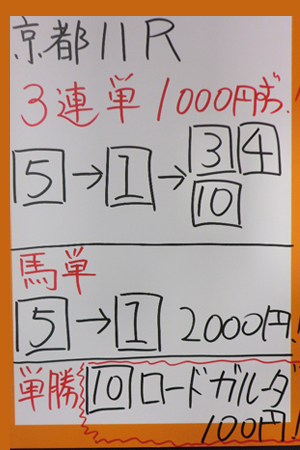 京都11R
3連単 1000円ずつ!
5→1→3 4
10
馬単
5→1 2000円!
単勝 10 ロードガルダ
100円!